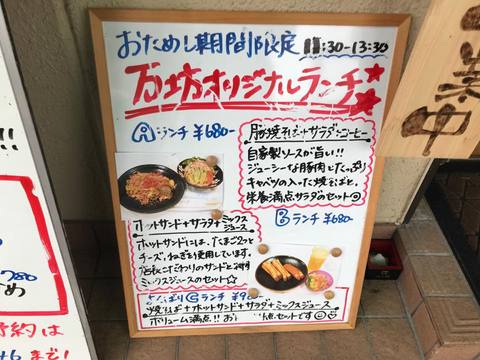 おためし期間限定 11:30-13:30
万坊オリジナルランチ
Ⓐランチ ¥680-
豚焼そば+サラダ+コーヒー
自家製ソースが旨い!!
ジューシーな豚肉とたっぷり
キャベツの入った焼そばと、
栄養満点サラダのセット☺
Ⓑランチ ¥680-
ホットサンド+サラダ+ミックス
ジュース
ホットサンドには、たまご2つと
チーズ、ねぎを使用しています。
店長こだわりのサンドと
ミックスジュースのセット☆
Ⓒランチ
焼そば+ホットサンド+サラダ+ミックスジュース
ボリューム満点!! お
セットです☺
集中
!!
約は
まで!